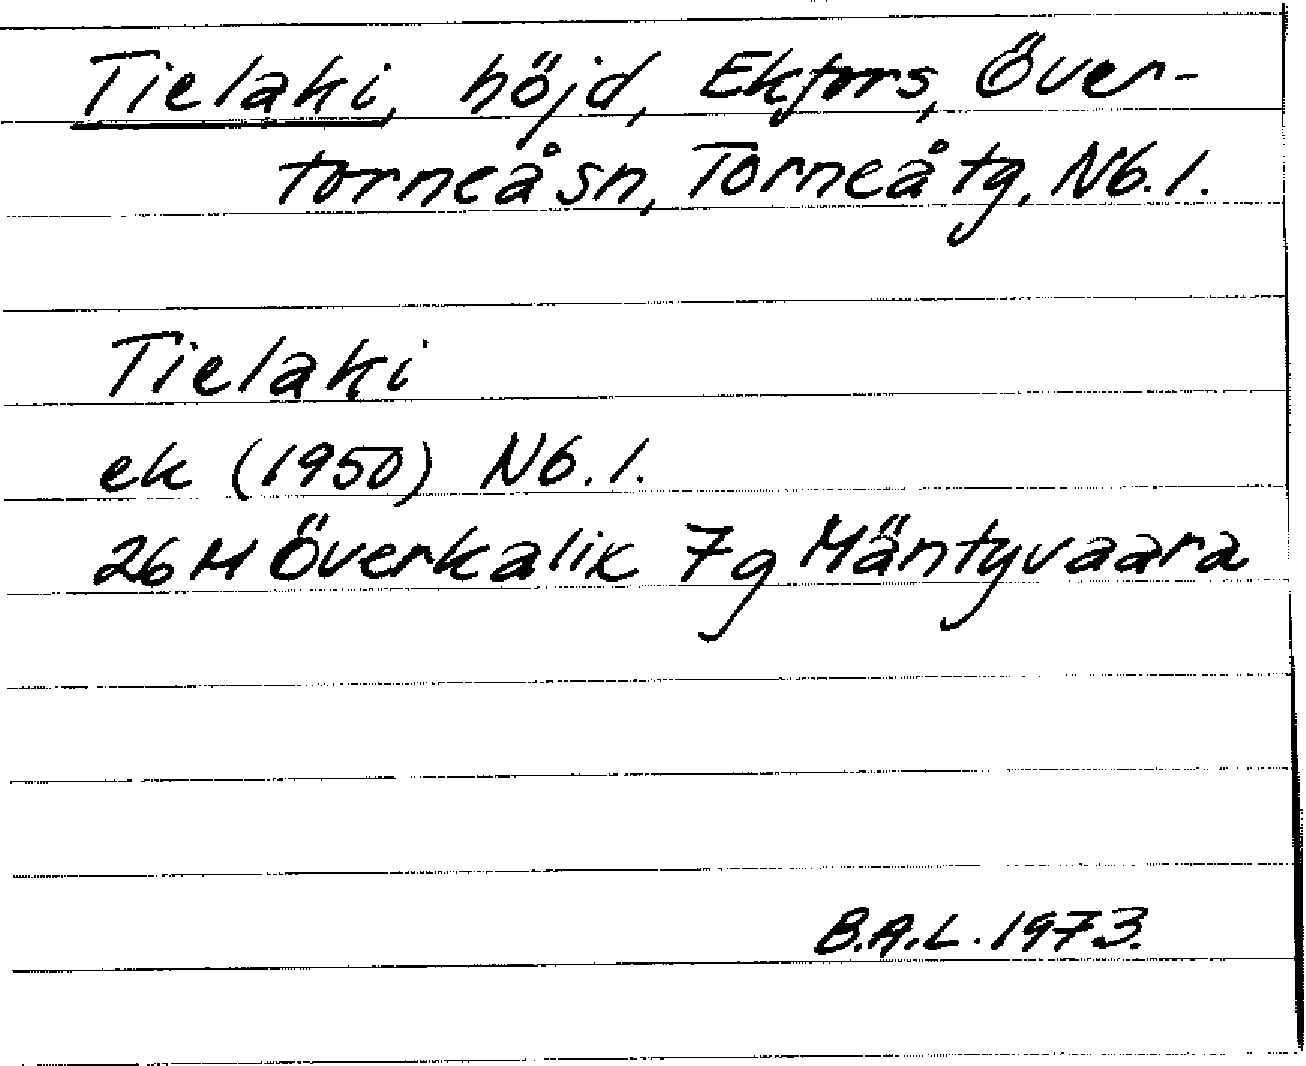 Tielaki, höjd, Ekfors, Över-
torneå sn, Torneå tg, Nb. l.
Tielaki
ek (1950) Nb. l.
26 M Överkalix 7g Mäntyvaara
B.A.L. 1973.